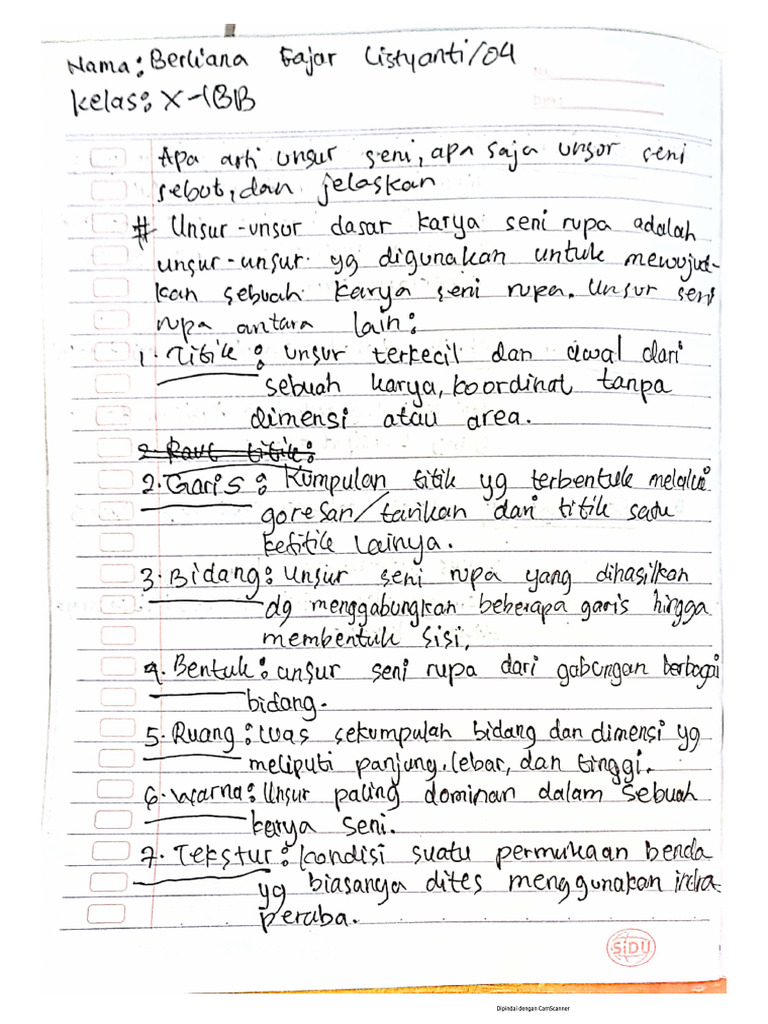 Nama: Berliana Fajar Listyanti/04
Kelas: X-IBB
Apa arti unsur seni, apa saja unsor seni
sebut, dan jelaskan
# Unsur-unsur dasar karya seni rupa adalah
unsur-unsur yg digunakan untuk mewujud-
kan sebuah karya seni rupa. Unsur seni
rupa antara lain:
1. Titik : unsur terkecil dan awal dari
sebuah karya, koordinat tanpa
dimensi atau area.
2. Raut titik:
2. Garis : Kumpulan titik yg terbentuk melalui
goresan/tarikan dari titik satu
ketitik lainya.
3. Bidang : Unsur seni rupa yang dihasilkan
dg menggabungkan beberapa garis hingga
membentuk sisi.
4. Bentuk : unsur seni rupa dari gabungan berbagai
bidang.
5. Ruang : luas sekumpulah bidang dan dimensi yg
meliputi panjang, lebar, dan tinggi.
6. Warna : Unsur paling dominan dalam sebuah
karya seni.
7. Tekstur : kondisi suatu permukaan benda
yg biasanya dites menggunakan indra
peraba.
SiDU
Dipindai dengan CamScanner